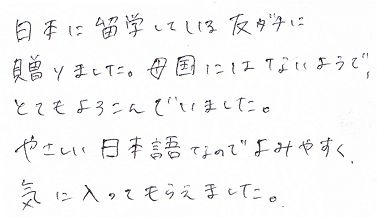 日本に留学している友ダチに
贈りました。母国にはナないようで、
とてもよろこんでいました。
やさしい日本語なのでよみやすく、
気に入ってもらえました。